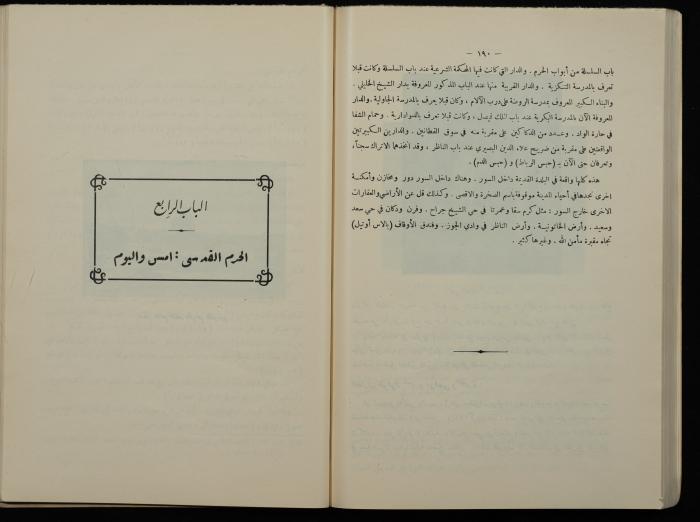 — ١٩٠ —
باب السلسلة من أبواب الحرم . والدار التي كانت فيها المحكمة الشرعية عند باب السلسلة وكانت قبلا
تعرف بالمدرسة التنكزية . والدار القريبة منها عند الباب المذكور المعروفة بدار الشيخ الخليلي .
والبناء الكبير المعروف بمدرسة الروضة على درب الآلام ، وكان قبلا يعرف بالمدرسة الجاولية . والدار
المعروفة الآن بالمدرسة البكرية عند باب الملك فيصل ، وكانت قبلا تعرف بالدوادارية . وحمام الشفا
في حارة الواد . وعدد من الدكاكين على مقربة منه في سوق القطانين . والدارين الكبيرتين
الواقعتين على مقربة من ضريح علاء الدين البصيري عند باب الناظر ، وقد اتخذهما الاتراك سجناً ،
وتعرفان حتى الآن بـ (حبس الرباط) و (حبس الدم) .
هذه كلها واقعة في البلدة القديمة داخل السور . وهناك داخل السور دور ومخازن وأمكنة
اخرى تجدها في أحياء المدينة موقوفة باسم الصخرة والاقصى . وكذلك قل عن الأراضي والعقارات
الاخرى خارج السور : مثل كرم سقا وعمرتا في حي الشيخ جراح . وفرن ودكان في حي سعد
وسعيد . وأرض الخاتونية . وأرض الناظر في وادي الجوز . وفندق الأوقاف (بالاس أوتيل)
تجاه مقبرة مأمن الله . وغيرها كثير .
الباب الرابع
الحرم القدسي : امس واليوم